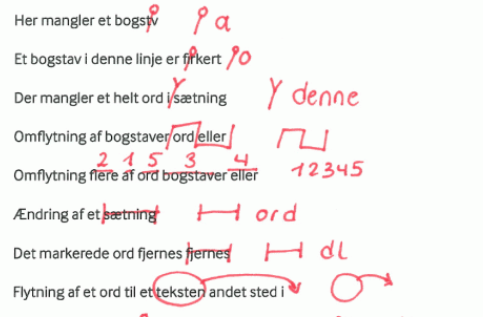 Her mangler et bogstv a
Et bogstav i denne linje er firkert o
Der mangler et helt ord i sætning denne
Omflytning af bogstaver ord eller
2 1 5 3 4
Omflytning flere af ord bogstaver eller 12345
Ændring af et sætning ord
Det markerede ord fjernes fjernes dl
Flytning af et ord til et teksten andet sted i